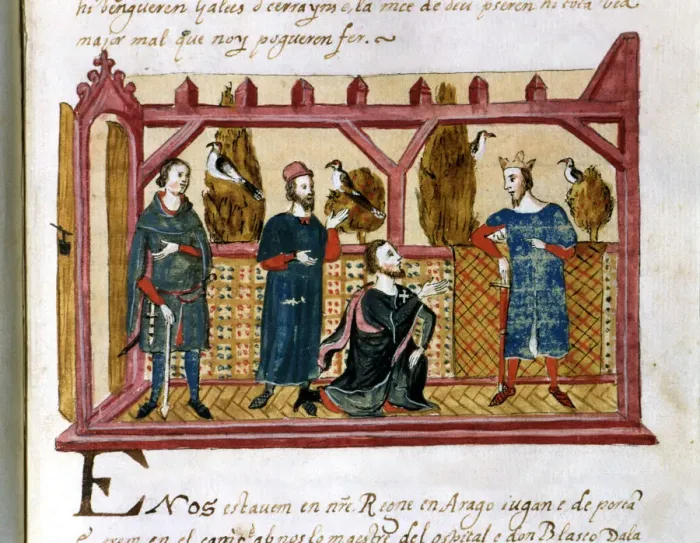 hi vengueren galees d cerrayns e, la mce de deu pseren hi tota vea
major mal que noy pogueren fer.~
E NOS estavem en nr̃e Regne en Arago iugan e de porta
e erem en el camp ab nos lo maestre del ospital e don Blasco Dala